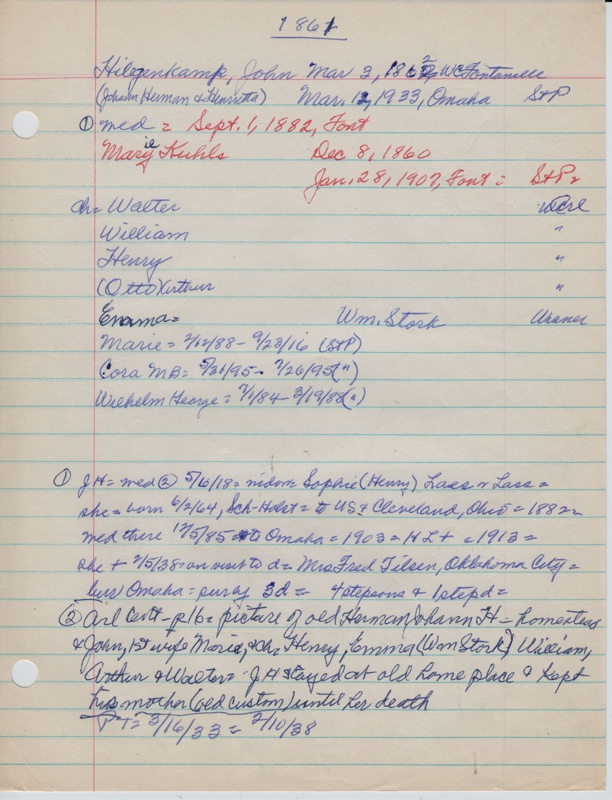 1861
Hilgenkamp, John Mar 3, 1862, WC Fontanelle
(Johann Herman & Henrietta) Mar. 12, 1933, Omaha St P
① med = Sept. 1, 1882, Font
Marie Kuhls Dec 8, 1860
Jan. 28, 1907, Font = St P=
Ch= Walter
William "
Henry "
(Otto) Arthur "
Emma= Wm. Stork
Marie = 2/12/88 - 9/23/16 (St P)
Cora MB= 5/31/95 - 7/26/95 (")
Wilhelm George = 7/1/84 - 3/19/88 (")
① JH = med ② 5/6/18 = widow= Sophie (Henry) Lass n Lass =
she = born 6/2/64, Sch-Holst = to US & Cleveland, Ohio = 1882=
med there 12/5/85 to Omaha = 1903 = HL + = 1913 =
she + 2/5/38 = on visit to d = Mrs Fred Tilsen, Oklahoma City =
bur Omaha = surv by 3d = 4 stepsons & 1 stepd =
② Arl Cent - p 16 = picture of old Herman Johann H - homestead
& John, 1st wife Marie, & ch= Henry, Emma (Wm Stork) William,
Arthur & Walter = JH stayed at old home place & kept
his mother (old custom) until her death
PT= 3/16/33 = 2/10/38